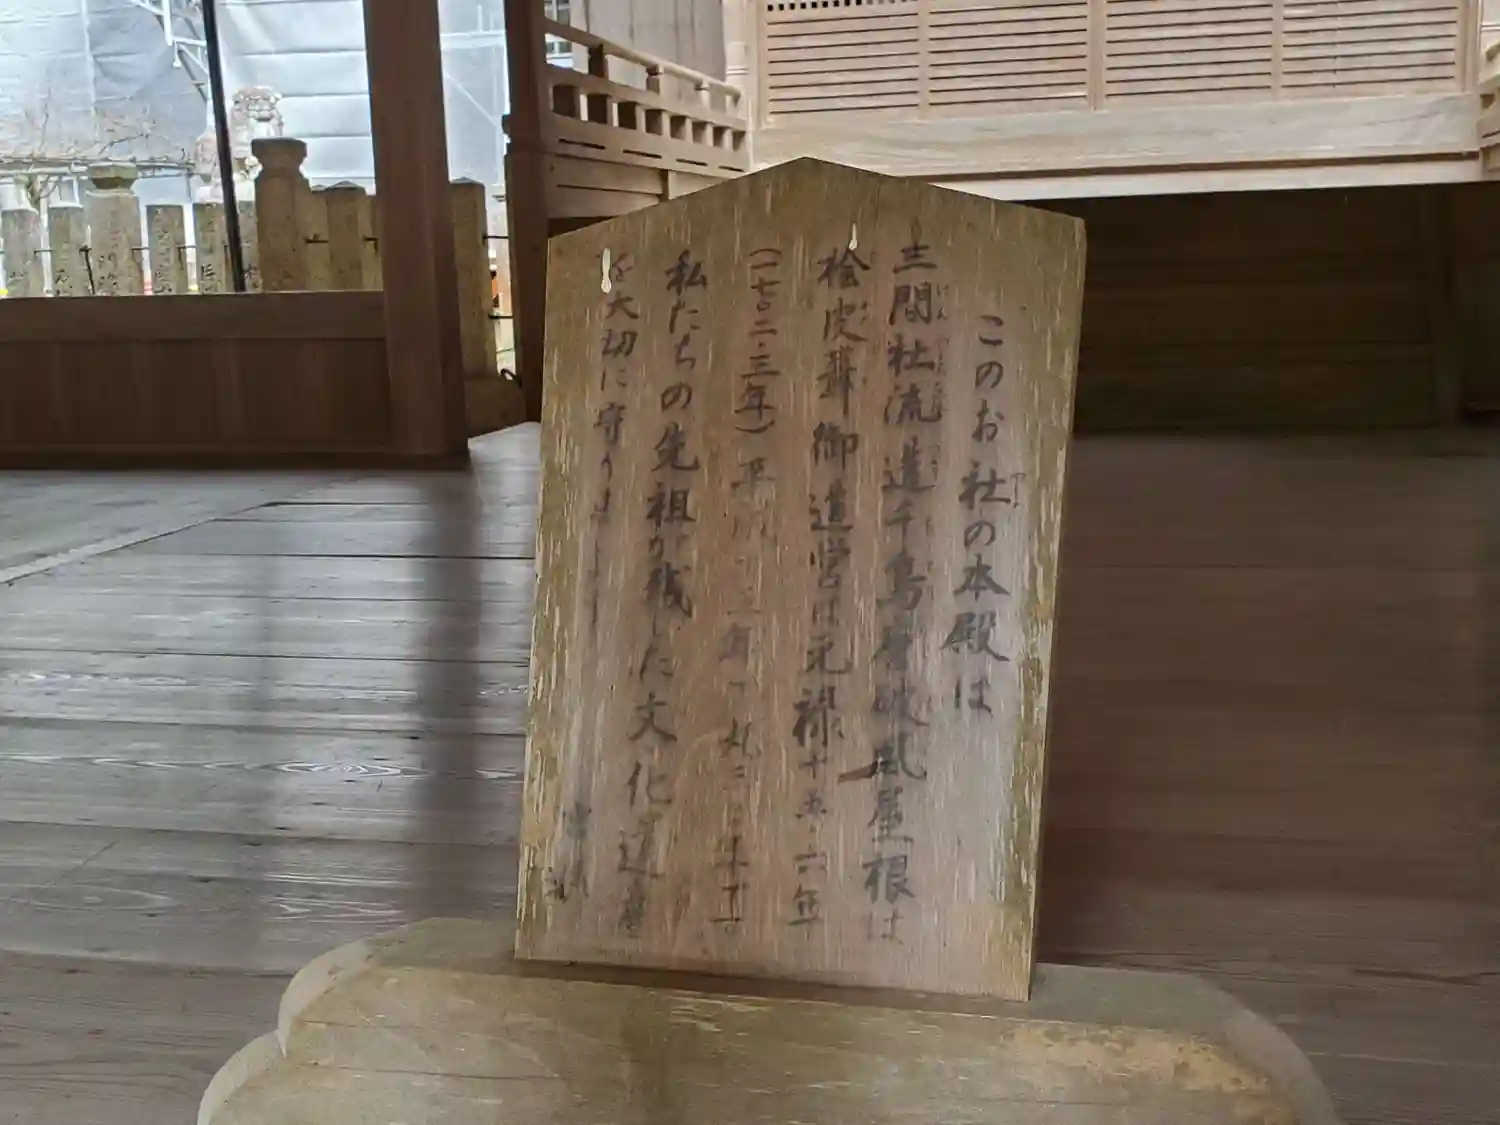 このお社の本殿は
三間社流造千鳥唐破風屋根は
桧皮葺御造営は元禄十五・六年
(一七〇二・三年)平成
私たちの先祖が残した文化遺産
を大切に守りましょう